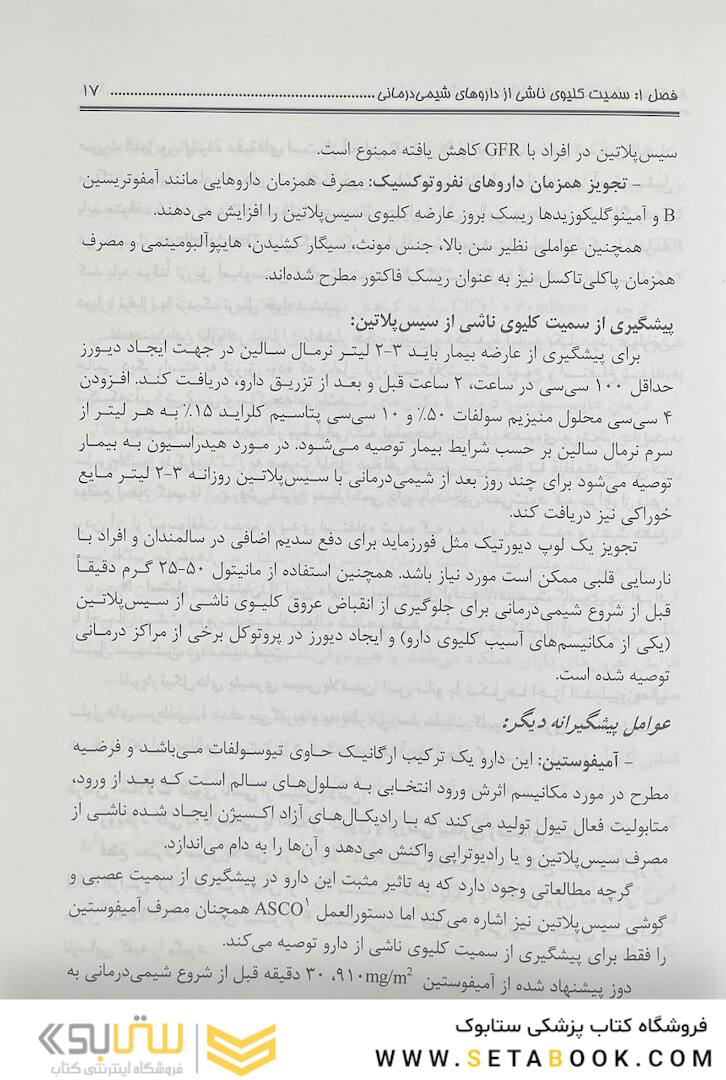 فصل ۱: سمیت کلیوی ناشی از داروهای شیمی‌درمانی ................................................................. ۱۷
سیس‌پلاتین در افراد با GFR کاهش یافته ممنوع است.
- تجویز همزمان داروهای نفروتوکسیک: مصرف همزمان داروهایی مانند آمفوتریسین
B و آمینوگلیکوزیدها ریسک بروز عارضه کلیوی سیس‌پلاتین را افزایش می‌دهند.
همچنین عواملی نظیر سن بالا، جنس مونث، سیگار کشیدن، هایپوآلبومینمی و مصرف
همزمان پاکلی‌تاکسل نیز به عنوان ریسک فاکتور مطرح شده‌اند.
پیشگیری از سمیت کلیوی ناشی از سیس‌پلاتین:
برای پیشگیری از عارضه بیمار باید ۳-۲ لیتر نرمال سالین در جهت ایجاد دیورز
حداقل ۱۰۰ سی‌سی در ساعت، ۲ ساعت قبل و بعد از تزریق دارو، دریافت کند. افزودن
۴ سی‌سی محلول منیزیم سولفات ۵۰٪ و ۱۰ سی‌سی پتاسیم کلراید ۱۵٪ به هر لیتر از
سرم نرمال سالین بر حسب شرایط بیمار توصیه می‌شود. در مورد هیدراسیون به بیمار
توصیه می‌شود برای چند روز بعد از شیمی‌درمانی با سیس‌پلاتین روزانه ۳-۲ لیتر مایع
خوراکی نیز دریافت کند.
تجویز یک لوپ دیورتیک مثل فورزماید برای دفع سدیم اضافی در سالمندان و افراد با
نارسایی قلبی ممکن است مورد نیاز باشد. همچنین استفاده از مانیتول ۵۰-۲۵ گرم دقیقاً
قبل از شروع شیمی‌درمانی برای جلوگیری از انقباض عروق کلیوی ناشی از سیس‌پلاتین
(یکی از مکانیسم‌های آسیب کلیوی دارو) و ایجاد دیورز در پروتوکل برخی از مراکز درمانی
توصیه شده است.
عوامل پیشگیرانه دیگر:
- آمیفوستین: این دارو یک ترکیب ارگانیک حاوی تیوسولفات می‌باشد و فرضیه
مطرح در مورد مکانیسم اثرش ورود انتخابی به سلول‌های سالم است که بعد از ورود،
متابولیت فعال تیول تولید می‌کند که با رادیکال‌های آزاد اکسیژن ایجاد شده ناشی از
مصرف سیس‌پلاتین و یا رادیوتراپی واکنش می‌دهد و آن‌ها را به دام می‌اندازد.
گرچه مطالعاتی وجود دارد که به تاثیر مثبت این دارو در پیشگیری از سمیت عصبی و
گوشی سیس‌پلاتین نیز اشاره می‌کند اما دستورالعمل ASCO¹ همچنان مصرف آمیفوستین
را فقط برای پیشگیری از سمیت کلیوی ناشی از دارو توصیه می‌کند.
دوز پیشنهاد شده از آمیفوستین ۹۱۰mg/m²، ۳۰ دقیقه قبل از شروع شیمی‌درمانی به
فروشگاه کتاب پزشکی ستابوک
WWW.SETABOOK.COM
ستابوک
فروشگاه اینترنتی کتاب